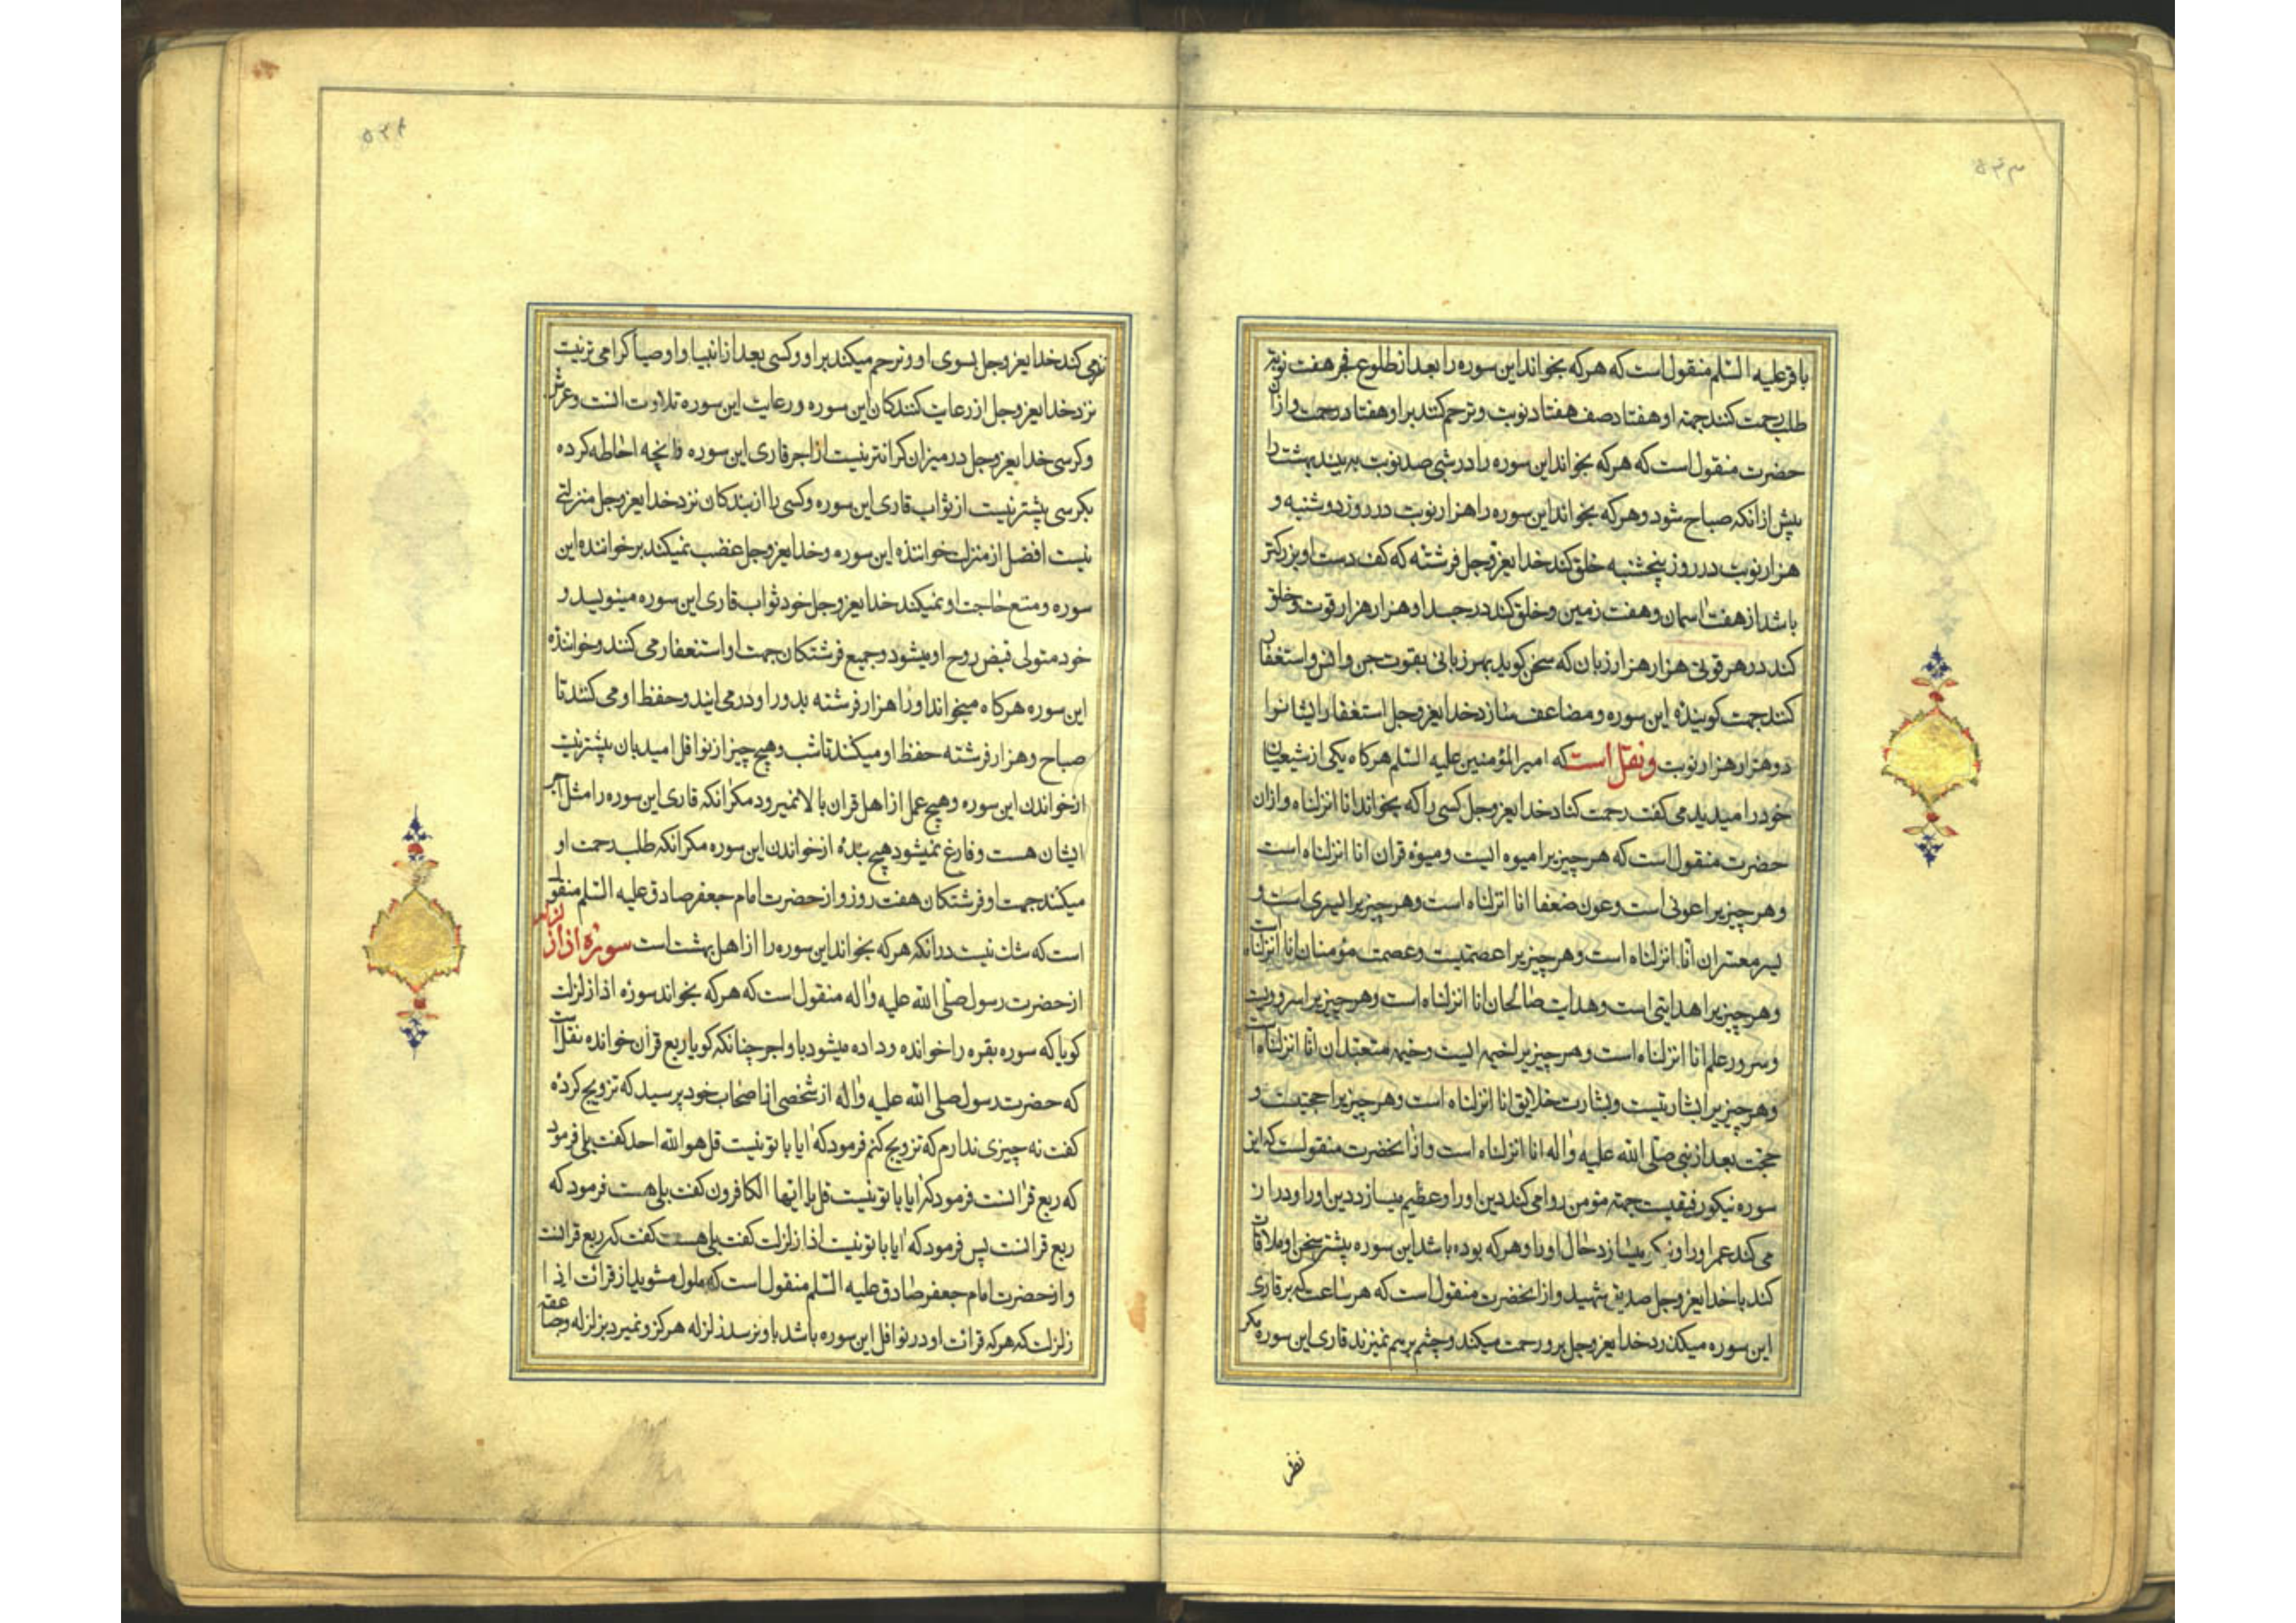 ۵۳۳
باقر علیه السلم منقول است که هر که بخواند این سوره را بعد از طلوع فجر هفت نوبة
طلب رحمت کنند جهة او هفتاد صف هفتاد نوبت و ترحم کنند براو هفتاد رحمت و ازان
حضرت منقول است که هر که بخواند این سوره را در شبی صد نوبت به بیند بهشت را
پیش ازانکه صباح شود و هر که بخواند این سوره را هزار نوبت در روز دوشنبه و
هزار نوبت در روز پنجشنبه خلق کند خدایعز وجل فرشته که کف دست او بزرکتر
باشد از هفت اسمان و هفت زمین و خلق کند در جسد او هزار هزار قوت و خلق
کند در هر قوتی هزار هزار زبان که سخن کوید بهر زبانی بقوت جن وانس و استغفار
کنند جهت کوینده این سوره و مضاعف سازد خدایعز وجل استغفار ایشانرا
دو هزار هزار نوبت و نقل است که امیر المؤمنین علیه السلم هر کاه یکی از شیعیان
خود را میدید می کفت رحمت کناد خدایعز وجل کسی را که بخواند انا انزلناه وازان
حضرت منقول است که هر چیز یرا میوه ایست و میوه قران انا انزلناه است
وهر چیز یرا عونی است وعون ضعفا انا انزلناه است وهر چیز یرا یسری است و
یسر معسران انا انزلناه است وهر چیز یرا عصمتیست وعصمت مؤمنان انا انزلناه است
وهر چیز یرا هدایتی است وهدایت صالحان انا انزلناه است وهر چیز یرا سروریست
وسرور علم انا انزلناه است وهر چیز یرا خیمه ایست وخیمه متعبدان انا انزلناه است
وهر چیز یرا بشارتیست وبشارت خلایق انا انزلناه است وهر چیز یرا حجتیست و
حجت بعد از نبی صلی الله علیه واله انا انزلناه است وازانحضرت منقولست که این
سوره نیکو رفیقیست جهة مؤمن روا می کند دین او را وعظیم میسازد دین او را ودراز
می کند عمر او را و میسازد حال او را وهر که بوده باشد این سوره پیشتر سخن او ملاقات
کند با خدایعز وجل صدیق شهید وازانحضرت منقول است که هر ساعت که بر قاری
این سوره میکذرد خدایعز وجل برو رحمت میکند وچشم برهم نمیزند قاری این سوره مکر
نظر
۵۳۴
می کند خدایعز وجل بسوی او وترحم میکند براو وکسی بعد از انبیا و اوصیا کرامی تر نیست
نزد خدایعز وجل از رعایت کنندکان این سوره ورعایت این سوره تلاوت انست وعرش
وکرسی خدایعز وجل در میزان کرانتر نیست از اجر قاری این سوره وانچه احاطه کرده
بکرسی پیشتر نیست از ثواب قاری این سوره وکسی را از بندکان نزد خدایعز وجل منزلتی
نیست افضل از منزلت خواننده این سوره وخدایعز وجل غضب نمیکند برخواننده این
سوره ومنع حاجت او نمیکند خدایعز وجل خود ثواب قاری این سوره مینویسد و
خود متولی قبض روح او میشود وجمیع فرشتکان جهت او استغفار می کنند وخواننده
این سوره هر کاه میخواند او را هزار فرشته بدور او در می ایند وحفظ او می کنند تا
صباح وهزار فرشته حفظ او میکنند تا شب وهیچ چیز از نوافل پیشتر نیست
از خواندن این سوره وهیچ عمل از اهل قران بالا نمیرود مکر انکه قاری این سوره را مثل اجر
ایشان هست وفارغ نمیشود هیچ بنده از خواندن این سوره مکر انکه طلب رحمت او
میکنند جهت او فرشتکان هفت روز واز حضرت امام جعفر صادق علیه السلم منقول
است که شك نیست درانکه هر که بخواند این سوره را از اهل بهشت است سوره اذا زلزلت
از حضرت رسول صلی الله علیه واله منقول است که هر که بخواند سوره اذا زلزلت
کویا که سوره بقره را خوانده وداده میشود باو اجر چنانکه کویا ربع قران خوانده نقل است
که حضرت رسول صلی الله علیه واله از شخصی از اصحاب خود پرسید که تزویج کرده
کفت نه چیزی ندارم که تزویج کنم فرمود که ایا با تو نیست قل هو الله احد کفت بلی فرمود
که ربع قرانست فرمود که ایا با تو نیست قل یا ایها الکافرون کفت بلی هست فرمود که
ربع قرانست پس فرمود که ایا با تو نیست اذا زلزلت کفت بلی هست کفت که ربع قرانست
واز حضرت امام جعفر صادق علیه السلم منقول است که ملول مشوید از قرائت اذا
زلزلت که هر که قرائت او در نوافل این سوره باشد باو نرسد زلزله هرکز ونمیرد بزلزله وصاعقه